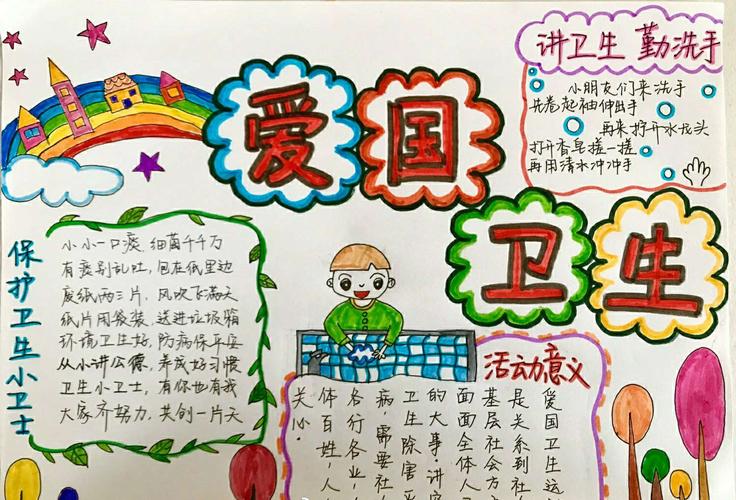 爱国
卫生
讲卫生 勤洗手
小朋友们来洗手
先卷起袖伸出手
再来打开水龙头
打开香皂搓一搓
再用清水冲冲手
保护卫生小卫士
小小一口痰,细菌千千万
有痰别乱吐,包在纸里边
废纸两三片,风吹飞满天
纸片用袋装,送进垃圾箱
环境卫生好,防病保平安
从小讲公德,养成好习惯
卫生小卫士,有你也有我
大家齐努力,共创一片天
活动意义
爱国卫生运
是关系到社
基层社会方
面面全体人
的大事。讲
卫生除害
病需要社
各行各业,
体百姓,人
关心。